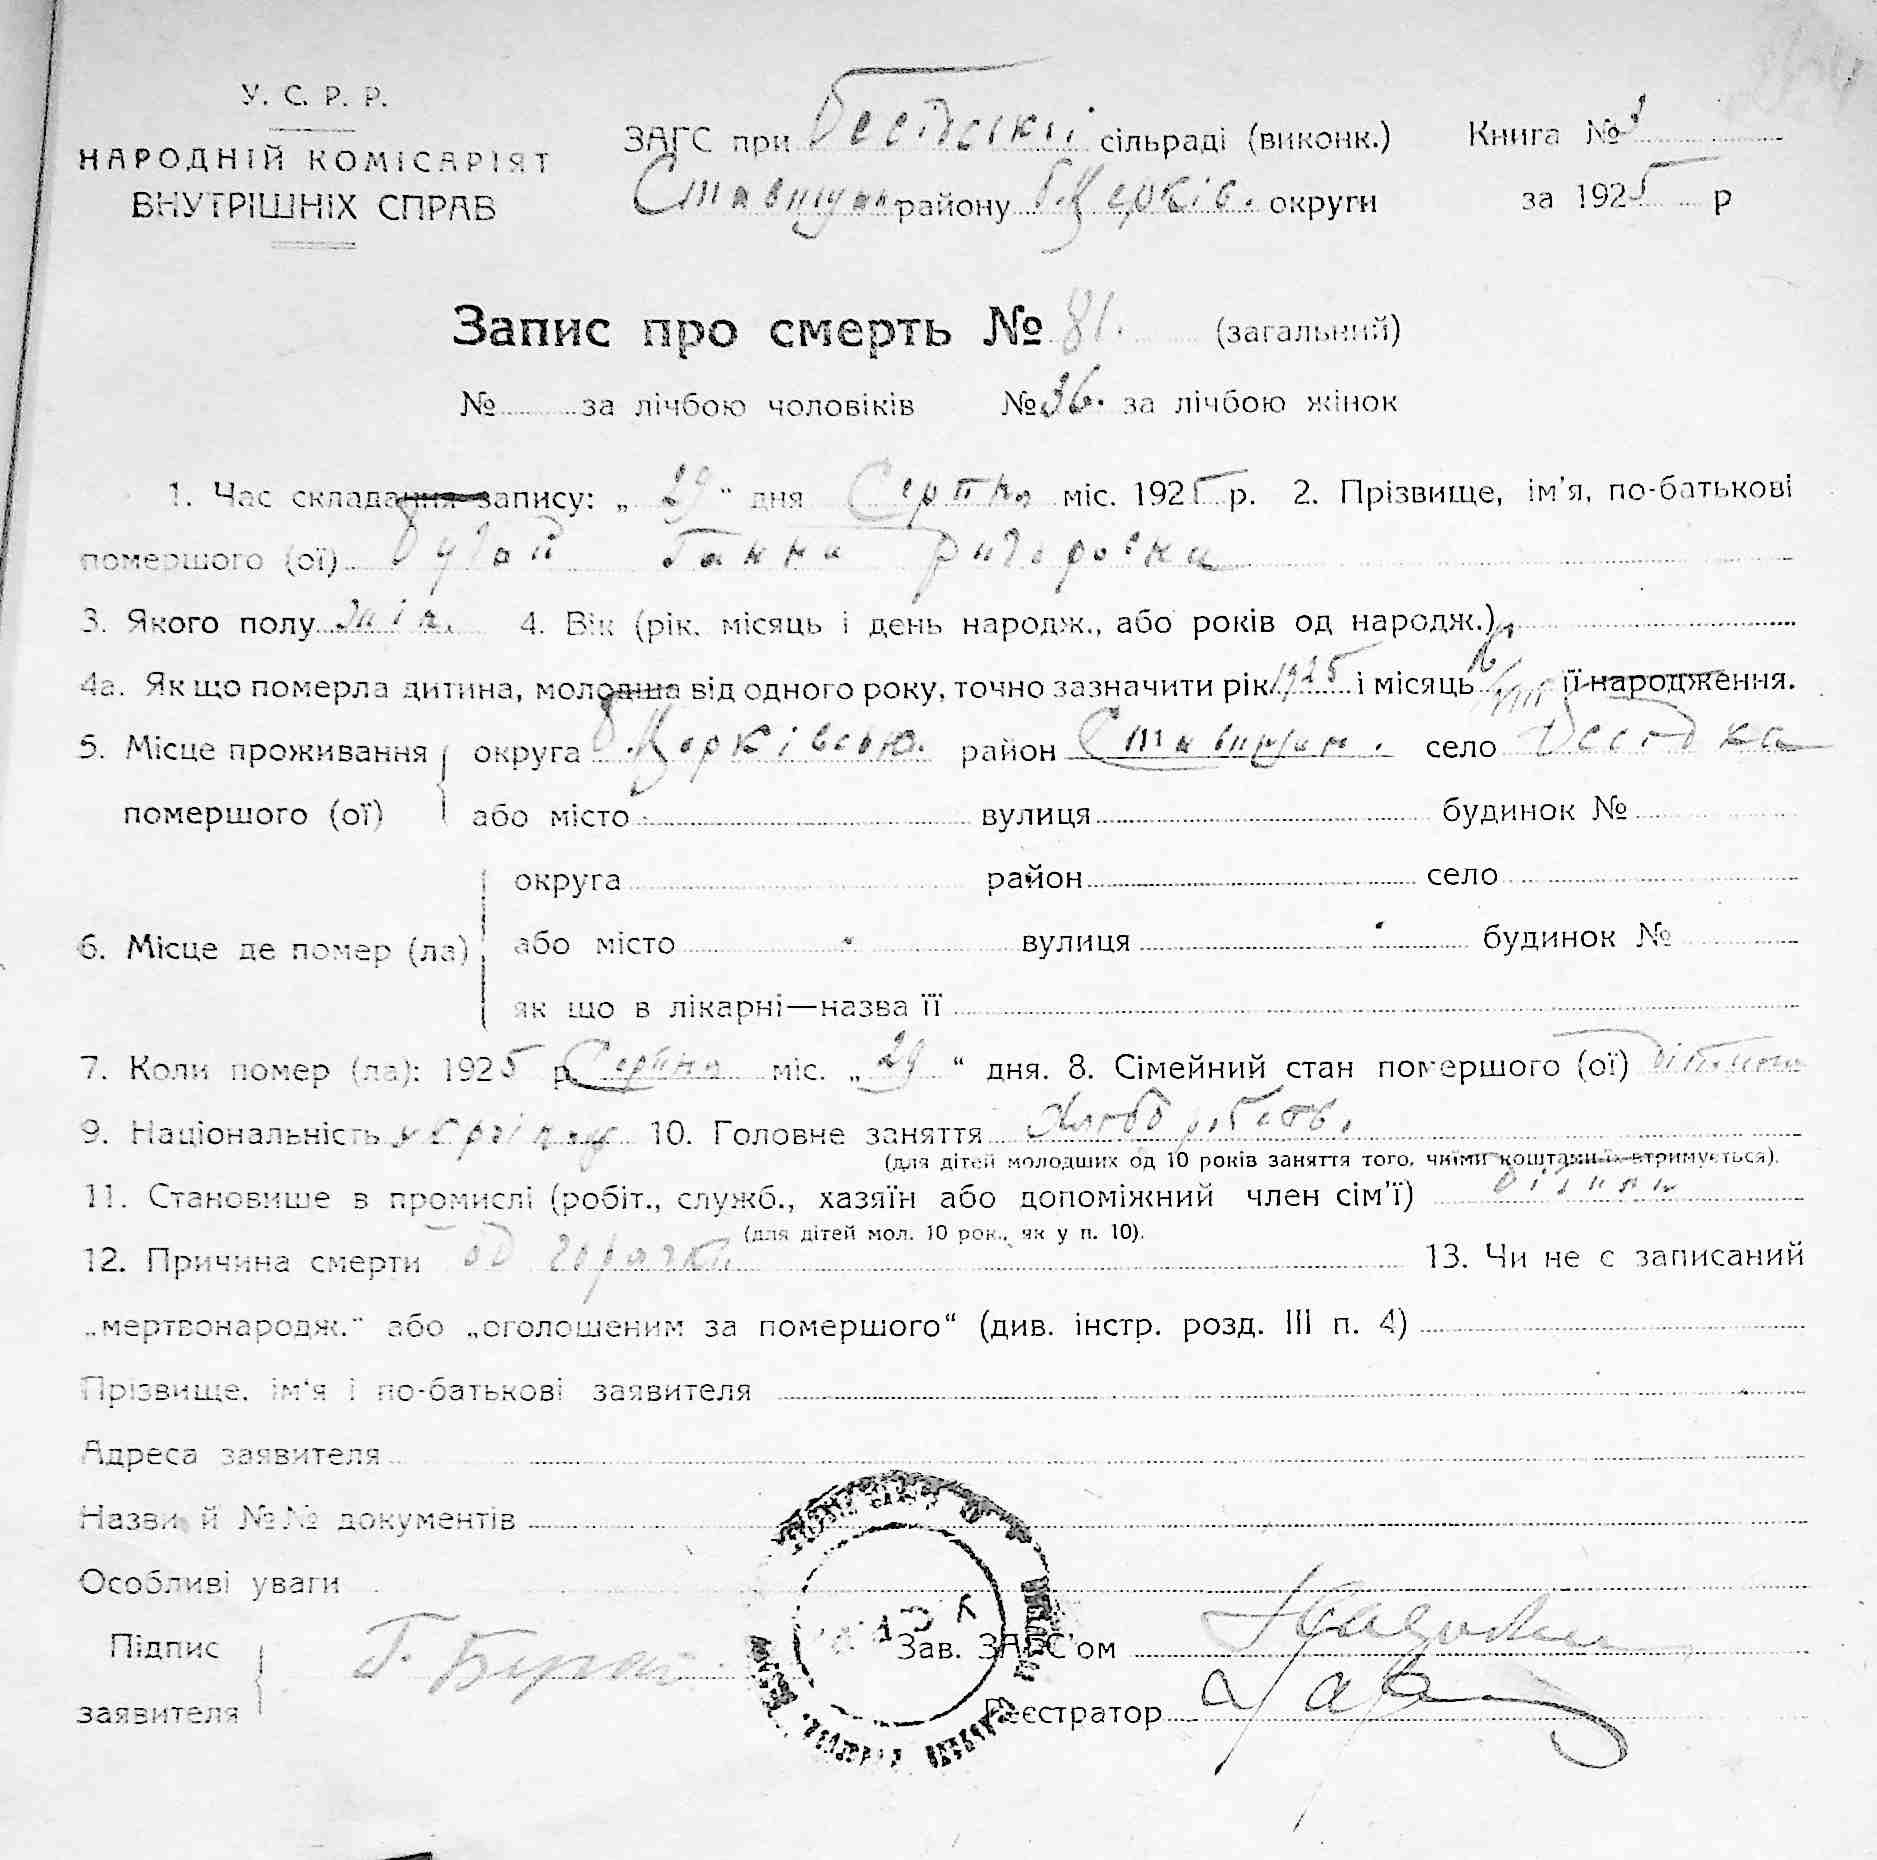 У. С. Р. Р.
НАРОДНІЙ КОМІСАРІЯТ
ВНУТРІШНІХ СПРАВ
ЗАГС при Бесідській сільраді (виконк.) Книга №
Ставищан району б.Церків. округи за 1925 р
Запис про смерть № 81. (загальний)
№ за лічбою чоловіків № 36. за лічбою жінок
1. Час складання запису: „ 29 “ дня Серпня міс. 1925 р. 2. Прізвище, ім'я, по-батькові
помершого (ої) Бугай Ганна Григоровна
3. Якого полу жін. 4. Вік (рік. місяць і день народж., або років од народж.)
4а. Як що померла дитина, молодша від одного року, точно зазначити рік 1925 і місяць її народження.
5. Місце проживання округа Б.Церківською. район Ставищан. село Бесідка
помершого (ої) або місто вулиця будинок №
округа район село
6. Місце де помер (ла) або місто вулиця будинок №
як що в лікарні—назва її
7. Коли помер (ла): 1925 р. Серпня міс. „ 29 “ дня. 8. Сімейний стан помершого (ої) дитина
9. Національність україн. 10. Головне заняття Хлібороб.
(для дітей молодших од 10 років заняття того, чиїми коштами їх втримується).
11. Становище в промислі (робіт., служб., хазяїн або допоміжний член сім'ї)
(для дітей мол. 10 рок., як у п. 10).
12. Причина смерти од горячки 13. Чи не є записаний
„мертвонародж.“ або „оголошеним за помершого“ (див. інстр. розд. III п. 4)
Прізвище, ім'я і по-батькові заявителя
Адреса заявителя
Назви й №№ документів
Особливі уваги
Підпис Г. Бугай Зав. ЗАГС'ом
заявителя Реєстратор